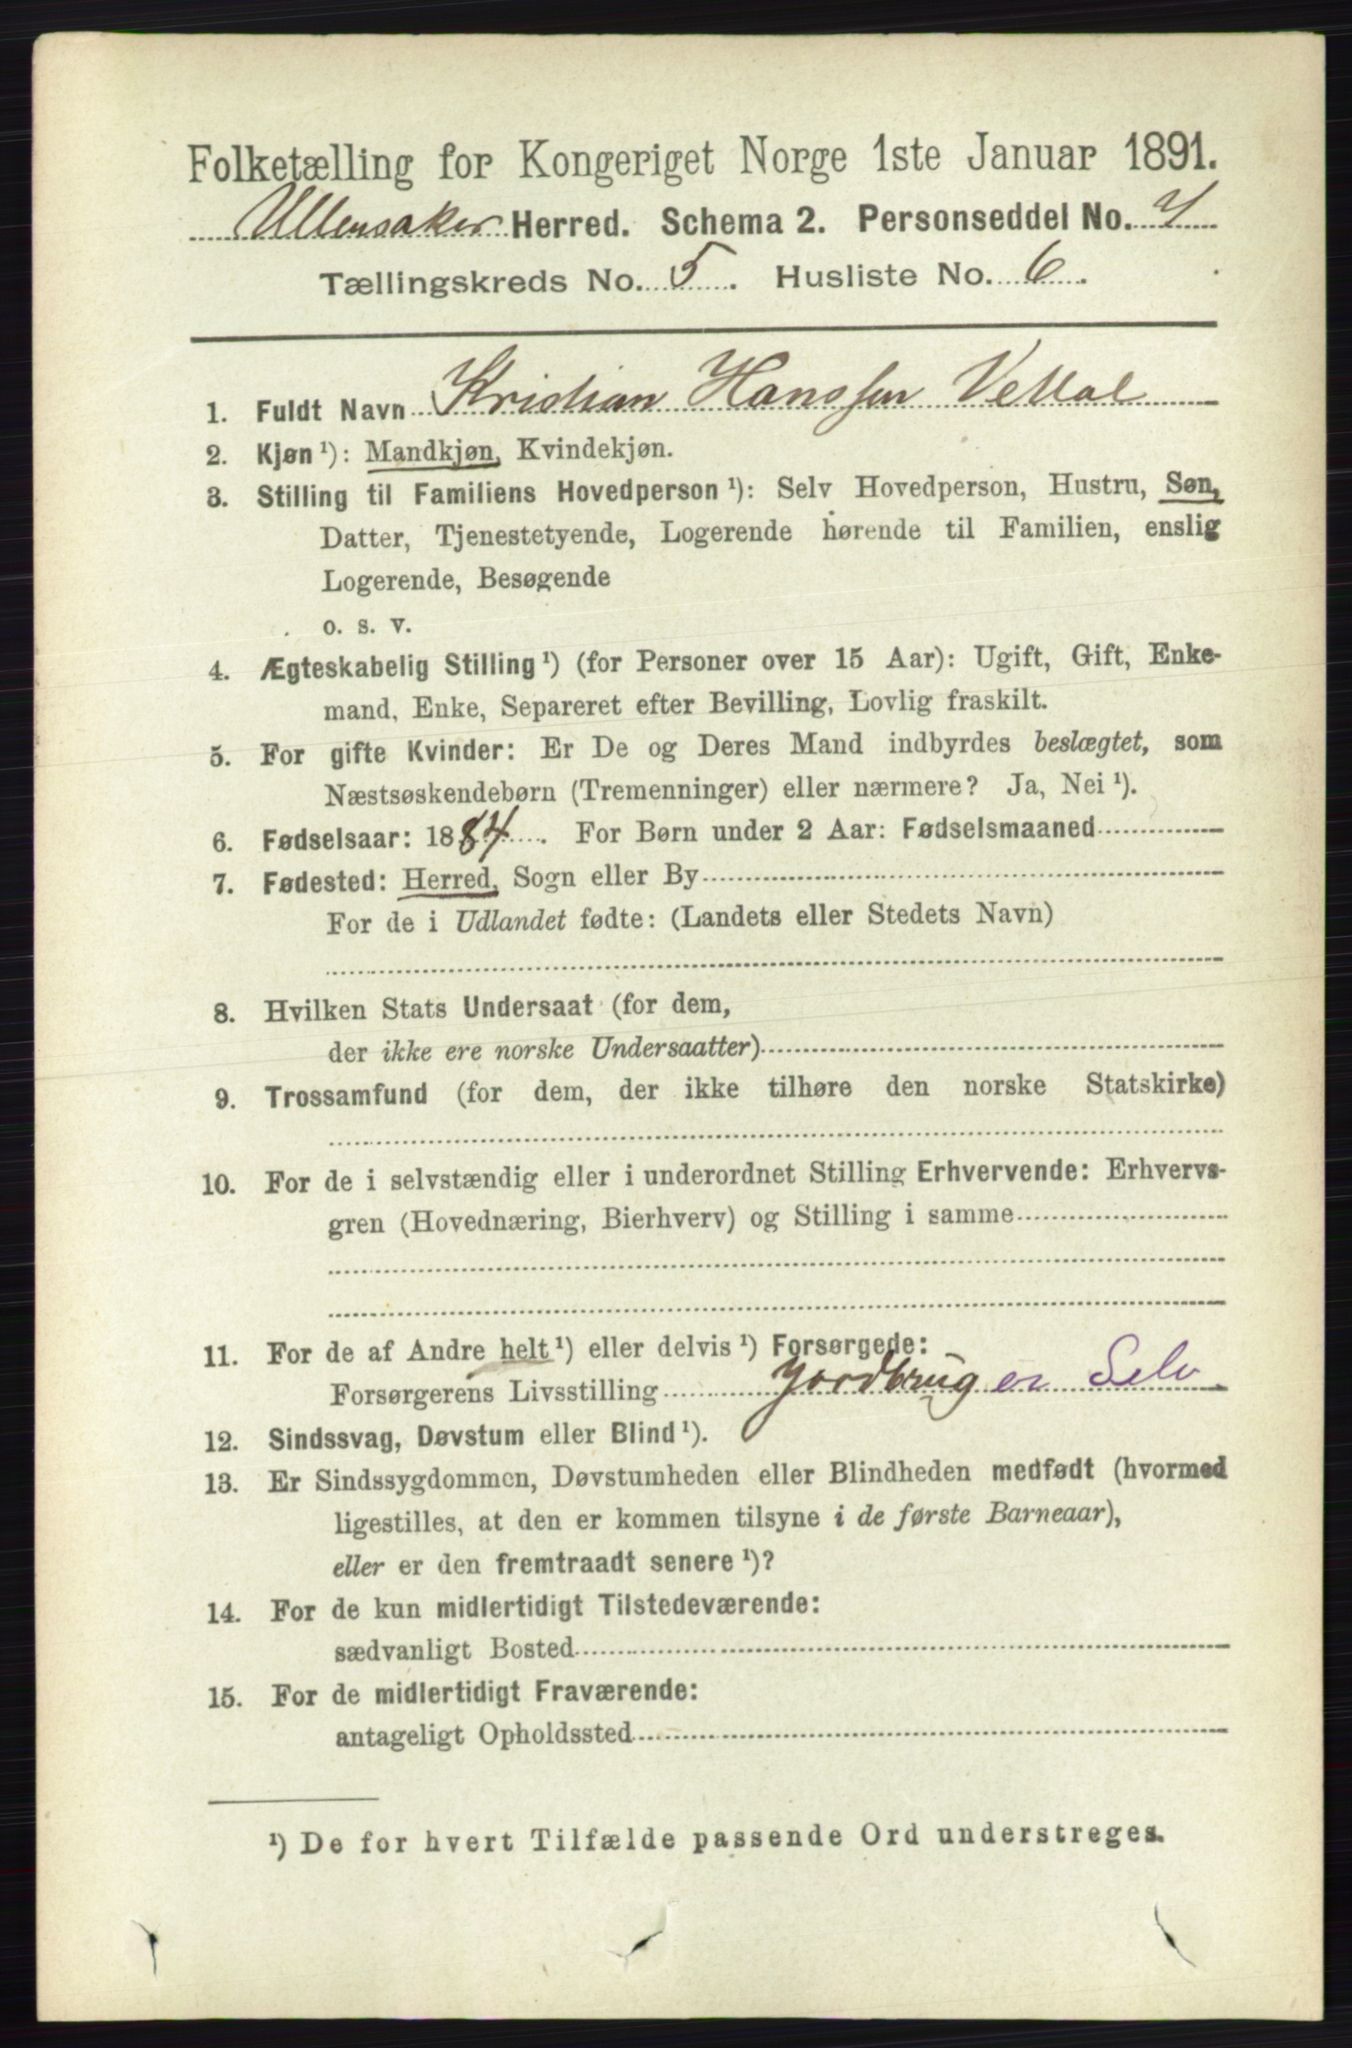 Folketælling for Kongeriget Norge 1ste Januar 1891.
Ullensaker Herred. Schema 2. Personseddel No. 7
Tællingskreds No. 5. Husliste No. 6.
1. Fuldt Navn Kristian Hanssen
2. Kjøn ¹): Mandkjøn, Kvindekjøn.
3. Stilling til Familiens Hovedperson ¹): Selv Hovedperson, Hustru, Søn,
Datter, Tjenestetyende, Logerende hørende til Familien, enslig
Logerende, Besøgende
o. s. v.
4. Ægteskabelig Stilling ¹) (for Personer over 15 Aar): Ugift, Gift, Enke-
mand, Enke, Separeret efter Bevilling, Lovlig fraskilt.
5. For gifte Kvinder: Er De og Deres Mand indbyrdes beslægtet, som
Næstsøskendebørn (Tremenninger) eller nærmere? Ja, Nei ¹).
6. Fødselsaar: 1884. For Børn under 2 Aar: Fødselsmaaned
7. Fødested: Herred, Sogn eller By
For de i Udlandet fødte: (Landets eller Stedets Navn)
8. Hvilken Stats Undersaat (for dem,
der ikke ere norske Undersaatter)
9. Trossamfund (for dem, der ikke tilhøre den norske Statskirke)
10. For de i selvstændig eller i underordnet Stilling Erhvervende: Erhvervs-
gren (Hovednæring, Bierhverv) og Stilling i samme
11. For de af Andre helt ¹) eller delvis ¹) Forsørgede:
Forsørgerens Livsstilling Jordbruger Selv
12. Sindssvag, Døvstum eller Blind ¹).
13. Er Sindssygdommen, Døvstumheden eller Blindheden medfødt (hvormed
ligestilles, at den er kommen tilsyne i de første Barneaar),
eller er den fremtraadt senere ¹)?
14. For de kun midlertidigt Tilstedeværende:
sædvanligt Bosted
15. For de midlertidigt Fraværende:
antageligt Opholdssted
¹) De for hvert Tilfælde passende Ord understreges.